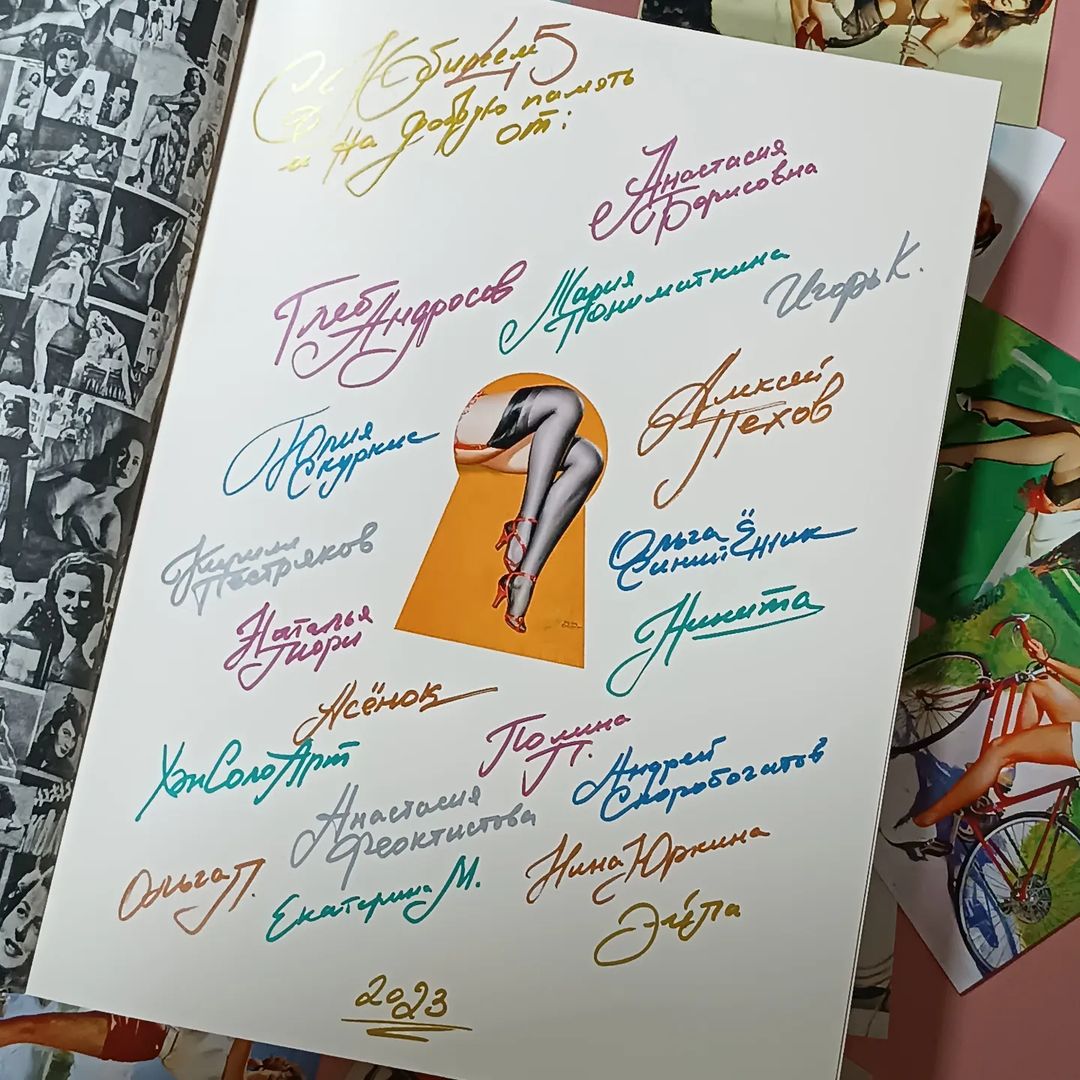 Юбилеем 45
и на добрую память
от:
Анастасия
Борисовна
Глеб
Андросов
Мария
Пониматкина
Игорь К.
Юлия
Скуркис
Алексей
Пехов
Кирилл
Пестряков
Ольга
Синий Ёжик
Наталья
Тиори
Никита
Асёнок
Полина
П.
ХэнСолоАрт
Андрей
Скоробогатов
Анастасия
Феоктистова
Ольга П.
Екатерина М.
Нина Юркина
2023